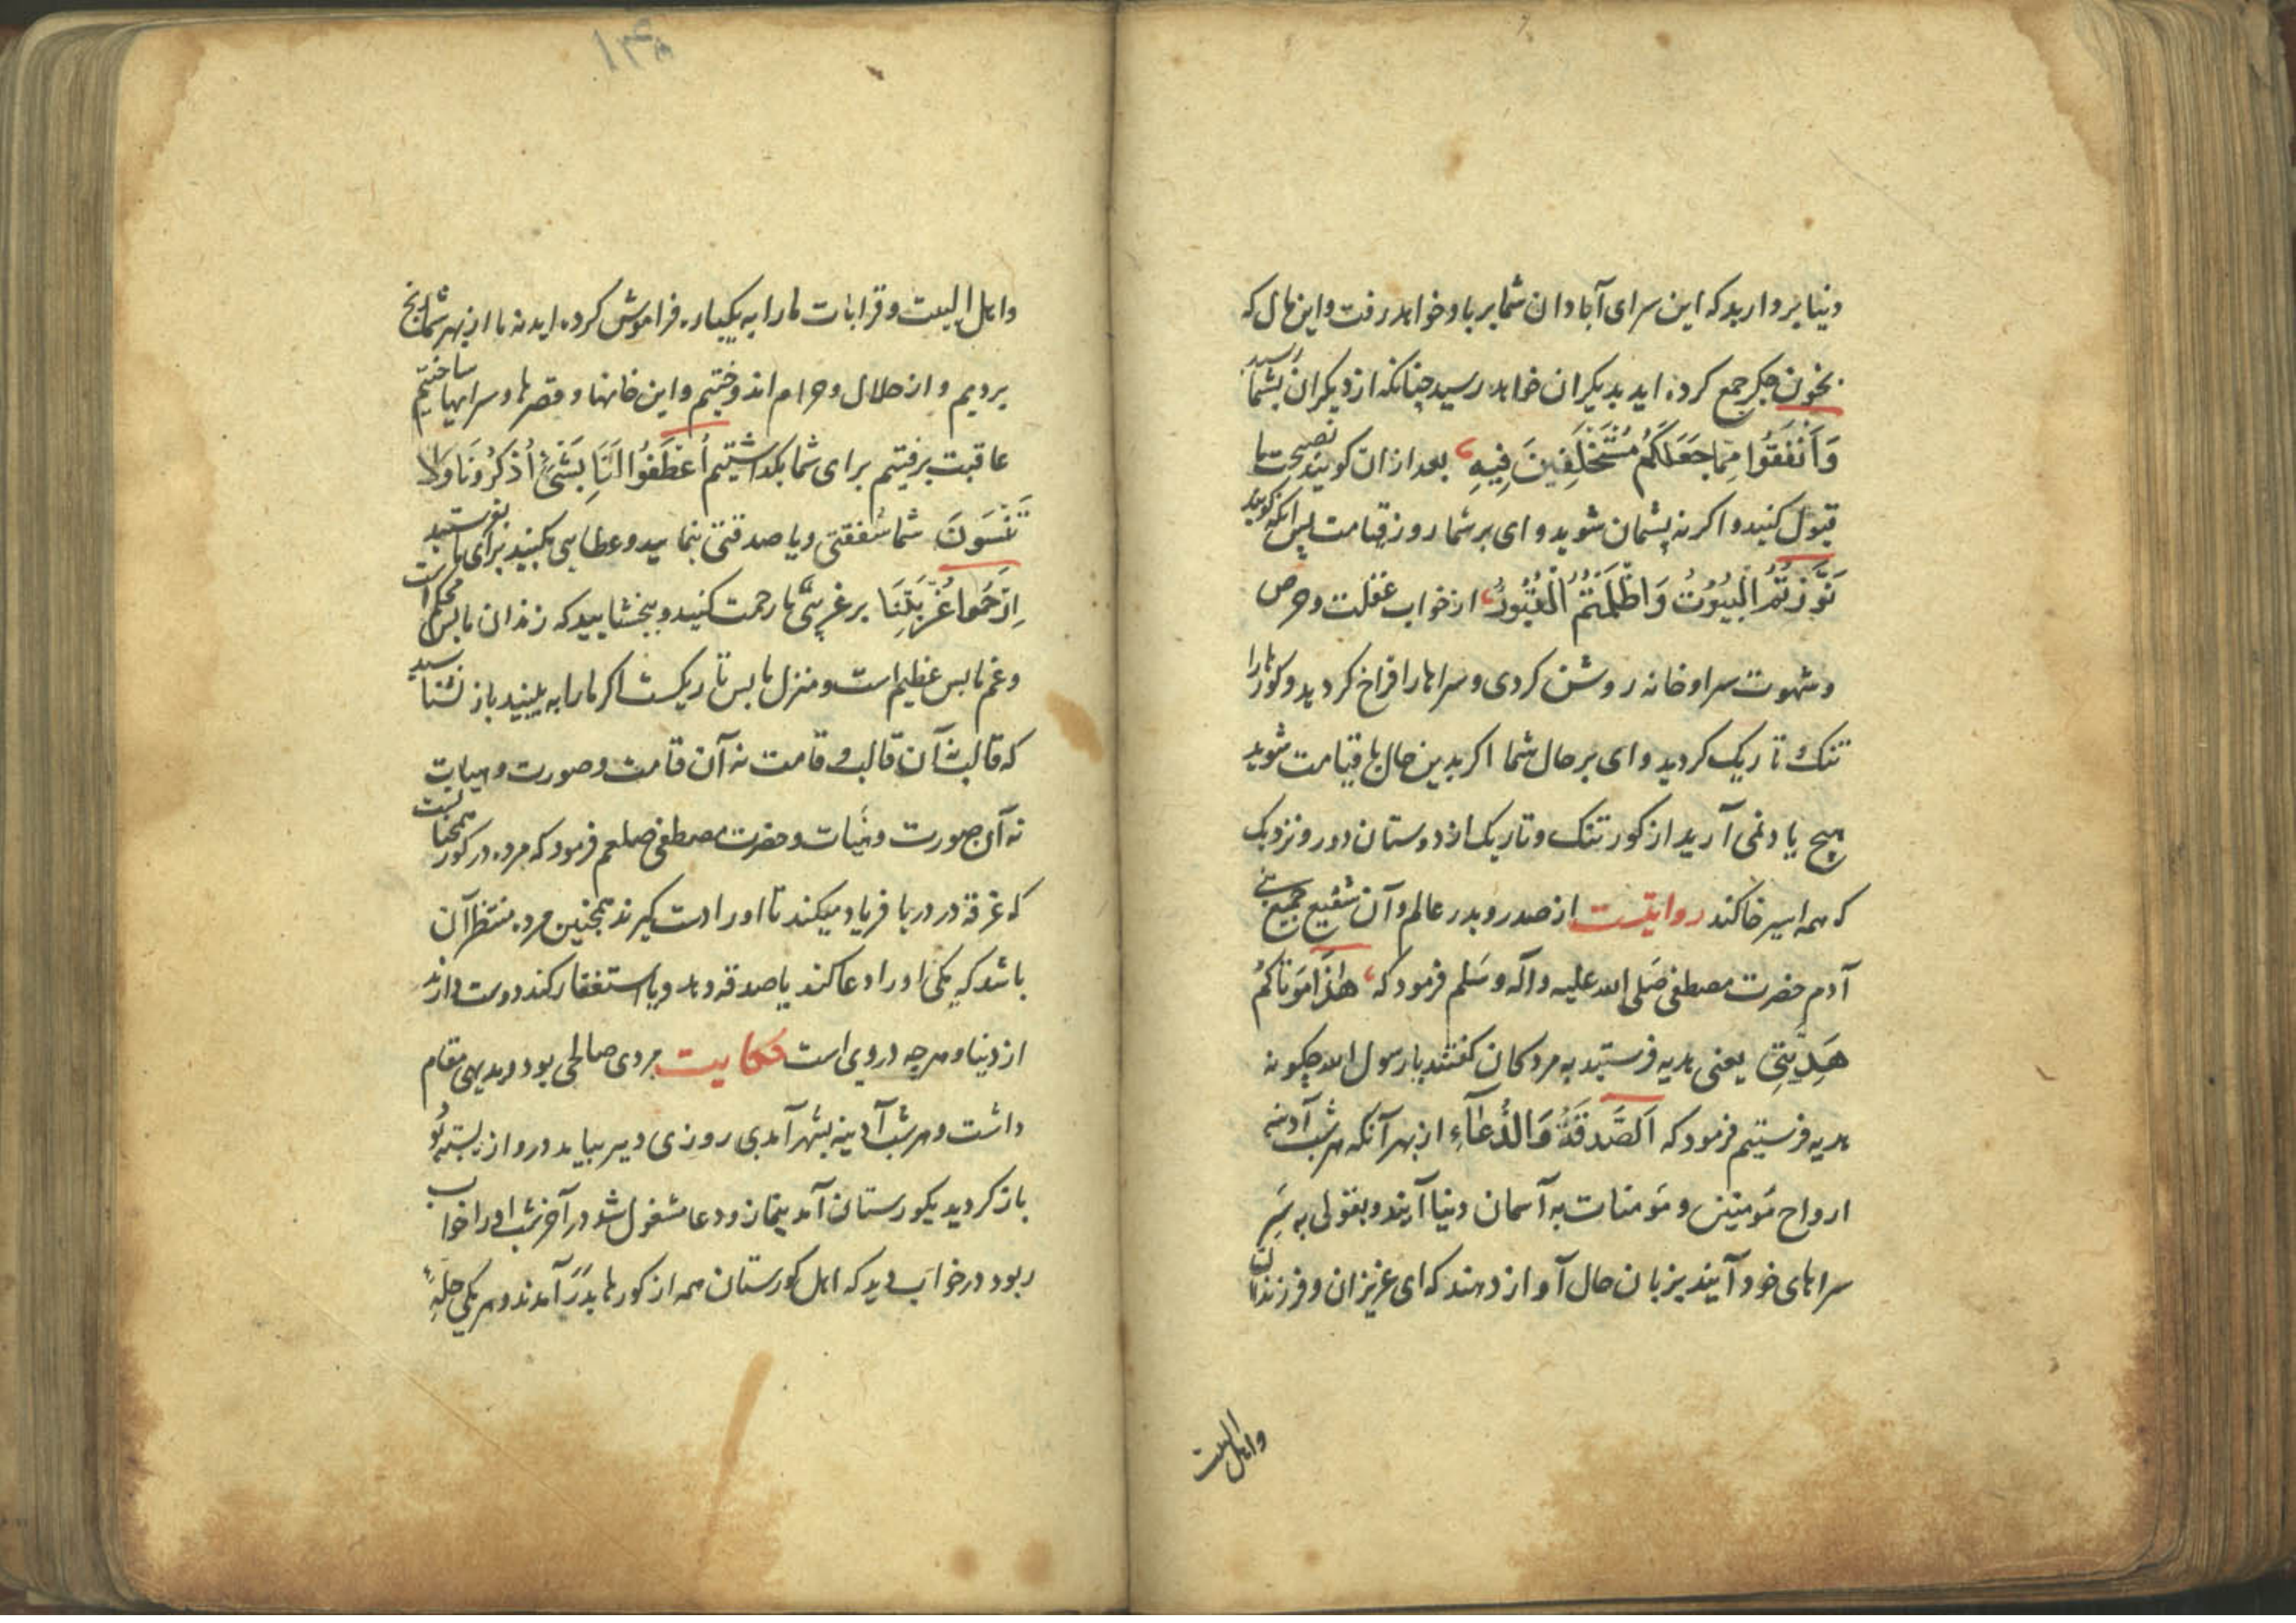 دنیا بردارید که این سرای آبادان شما بر باد خواهد رفت و این مال که
بخون جکر جمع کرده اید بدیکران خواهد رسید چنانکه از دیکران بشما رسید
وَاَنْفَقُوا مِمّا جَعَلَكُم مُسْتَخْلَفِينَ فِيهِ بعد ازان کویند نصیحت ما
قبول کنید و اکر نه پشمان شوید و ای بر شما روز قیامت پس انکه کویند
نَوَّرْتُمُ الْبُيُوْتُ وَ اَظْلَمْتُمُ الْقُبُوْرُ از خواب غفلت و حرص
و شهوت سرا و خانه روشن کردی و سراها را فراخ کردید و کورها را
تنک و تاریک کردید و ای بر حال شما اکر بدین حال بقیامت شوید
هیچ یاد نمی آرید از کور تنک و تاریک از دوستان دور و نزدیک
که همه اسیر خاکند روایتست از صدر و بدر عالم و آن شفیع جمیع بنی
آدم حضرت مصطفی صَلی الله علیه و آله و سَلم فرمود که هٰذَا مَوْتَاكُمْ
هَدِيَّتِي یعنی هدیه فرستید به مردکان کفتند یا رسول الله چکونه
هدیه فرستیم فرمود که اَلصَّدَقَةُ وَالدُّعَآءِ از بهر آنکه هر شب آدینه
ارواح مَومنین و مَومنات به آسمان دنیا آیند و بقولی به سَرِ
سراهای خود آیند بزبان حال آواز دهند که ای عزیزان و فرزندان
و اهل البیت
۱۳۵
و اهل البیت و قرابات ما را به یکبار، فراموش کرده اید نه ما از بهر شما رنج
بردیم و از حلال و حرام اندوختیم و این خانها و قصرها و سرایها ساختیم
عاقبت برفتیم برای شما بکداشتیم اُعْطَفُوا لَنَا بِشَيْءٍ اُذْكُرُونَا وَلَا
تَنْسَوْنَ شما شفقتی و یا صدقتی بنمایید و عطایی بکنید برای ما بفرستید
اِرْحَمُوا غُرْبَتِنَا بر غریبیَّ ما رحمت کنید و ببخشایید که زندان ما بس محکم است
و غم ما بس عظیم است و منزل ما بس تاریکست اکر ما را به بینید باز نشناسید
که قالب نه آن قالب و قامت نه آن قامت و صورت و هیات
نه آن صورت و هیات و حضرت مصطفی صلعم فرمود که مرده در کور همچنانست
که غرقه در دریا فریاد میکند تا او را دست کیرند همچنین مرده منتظر آن
باشد که یکی او را دعا کند یا صدقه دهد و یا استغفار کند دوست دارند
از دنیا و هرچه دروی است حکایت مردی صالحی بود و بدیهی مقام
داشت و هر شب آدینه بشهر آمدی روزی دیر بیامد دروازه بسته بود
باز کردید بکورستان آمد بنماز و دعا مشغول شد در آخر شب او را خواب
ربود در خواب دید که اهل کورستان همه از کورها بدر آمدند و هر یکی حلهٔ